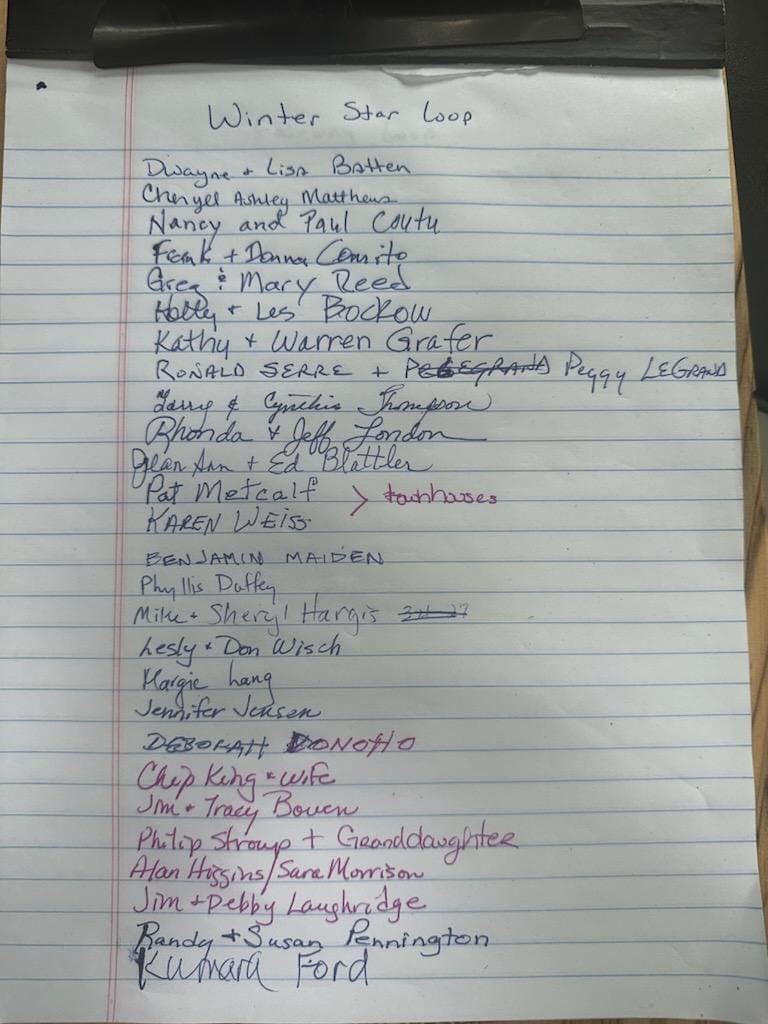 Winter Star Loop
Dwayne + Lisa Batten
Cheryel Ashley Matthews
Nancy and Paul Coutu
Frank + Donna
Greg & Mary Reed
Holly + Les Bockow
Kathy + Warren Grafer
RONALD SERRE + Peggy LEGRAND
Larry & Cynthia Thompson
Rhonda & Jeff London
Jean Ann + Ed Blattler
Pat Metcalf > townhouses
KAREN WEISS
BENJAMIN MAIDEN
Phyllis Duffey
Mike + Sheryl Hargis
Lesly + Don Wisch
Margie Lang
Jennifer Jensen
DEBORAH DONOHO
Chip King + wife
Jim + Tracy Bowen
Philip Stroup + Granddaughter
Alan Higgins/Sara Morrison
Jim + Debby Laughridge
Randy + Susan Pennington
Kumara Ford